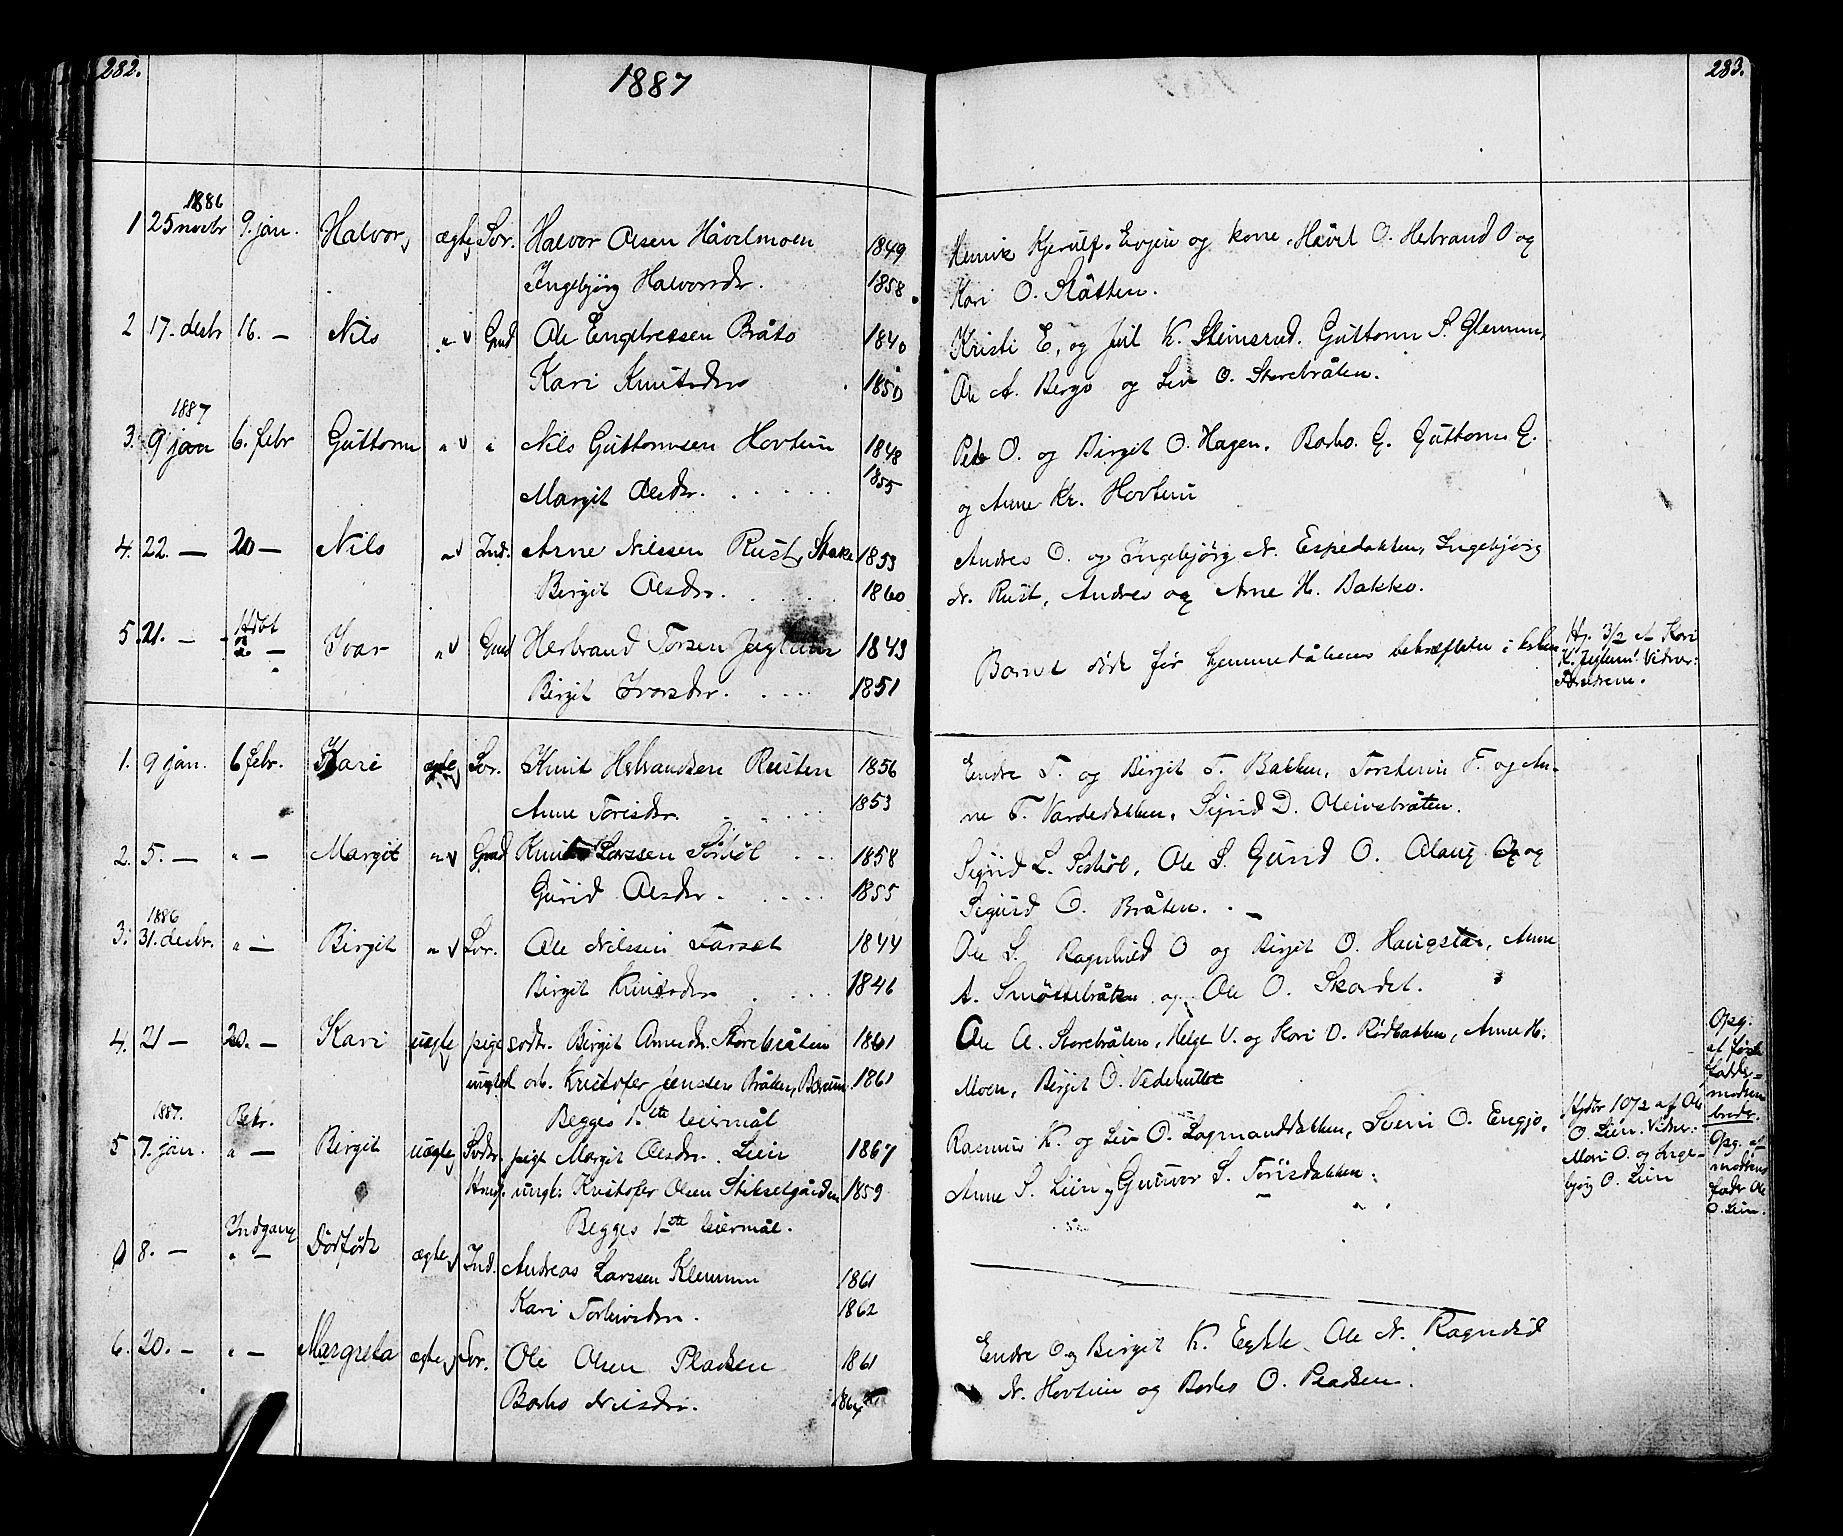 282.
1887
1886
1 25 novbr 9. jan. Halvor ægte Sor. Halvor Olsen Håvelmoen 1849
Ingebjørg Halvorsdr. 1858
2 17. decbr 16. — Nils " Gmd Ole Engebretsen Bråto 1840
Kari Knutsdr 1850
1887
3. 9 jan 6. febr Guttorm " " Nils Guttormsen Hovtun 1848
Margit Olsdr. . . . . . 1855
4. 22. — 20 — Nils " Ind. Arne Nilssen Rust, 1853
Birgit Olsdr. . . . . 1860
5. 21. — " — Ivar " Gmd Herbrand Torsen 1843
Birgit Ivarsdr. . . . . 1851
1. 9 jan. 6 febr. Kari ægte Sor. Knut Herbrandsen Rusten 1856
Anne Torisdr. 1853
2. 5. — " — Margit " Gmd Knut Larssen 1858
Gurid Olsdr. . . . . . 1855
1886
3. 31. decbr. " — Birgit " Sor. Ole Nilssen Farset 1844
Birgit Knutsdr . . . . 1846
4. 21 — 20. — Kari uægte pige sodtr. Birgit Arnesdr. Storebråten 1861
ungkl arb. Kristofer Jenssen Bråten, Bærum. 1861
Begges 1ste leiermål
1887. Bekr.
5 7. jan. " — Birgit uægte Sodtr. pige Margit Olsdr. Lien 1867
ungk. Kristofer Olsen 1859
Begges 1ste leiermål.
Indgang
0 8. — " — Dødfødt ægte Ind. Andreas Larssen Klemmun 1861
Kari Torleivsdr. 1862
6. 20. — " — Margreta ægte Sor. Ole Olsen Pladsen 1861
Barbo Nilsdr. 1864
283.
Henrik Kjerulf. Evjen og kone. Håvel O. Hebrand O og
Kari O. Slåtten.
Kristi E. og Jul K. Steinsrud. Guttorm S.
Ole A. Bergo og Liv O. Storebråten.
O. og Birgit O. Hagen. Barbo G. Guttorm G.
og Anne Kr. Hovtun
Andres O. og Ingebjørg N. Espedokken, Ingebjørg
N. Rust, Andres og Arne H. Bakko.
Barnet døde før hjemmedåbens bekræftelse i kirken
Hj. 3/2 af Kari
Vidner:
Forældrene.
Endre T. og Birgit T. Bakken, Torstein T. og An-
ne T. Vardedokken, Sigrid D. Oleivsbråten.
Sigrid L. Ole S. Gurid O. Olaug O. og
Sigurd O. Bråten.
Ole S. Ragnhild O og Birgit O. Haugstar, Anne
A. Smøttebråten og Ole O. Skardet.
Ole A. Storebråten, Helge V. og Kari O. Rødbakken, Anne H.
Moen, Birgit O. Vedehullet
Rasmus K. og Liv O. Lagmandsdokken, Svein O. Engjo,
Anne S. Lien, Gunvor S. Torisdokken.
Hjdbt 10/2 af Ole
O. Lien. Vidner:
Mari O. og Inge-
bjørg O. Lien
Opg.
af
moderen
Opg. af
moderens
fader Ole
O. Lien.
Endre O og Birgit K. Ole N. Ragndid
N. Hovtun og Barbo O. Pladsen.